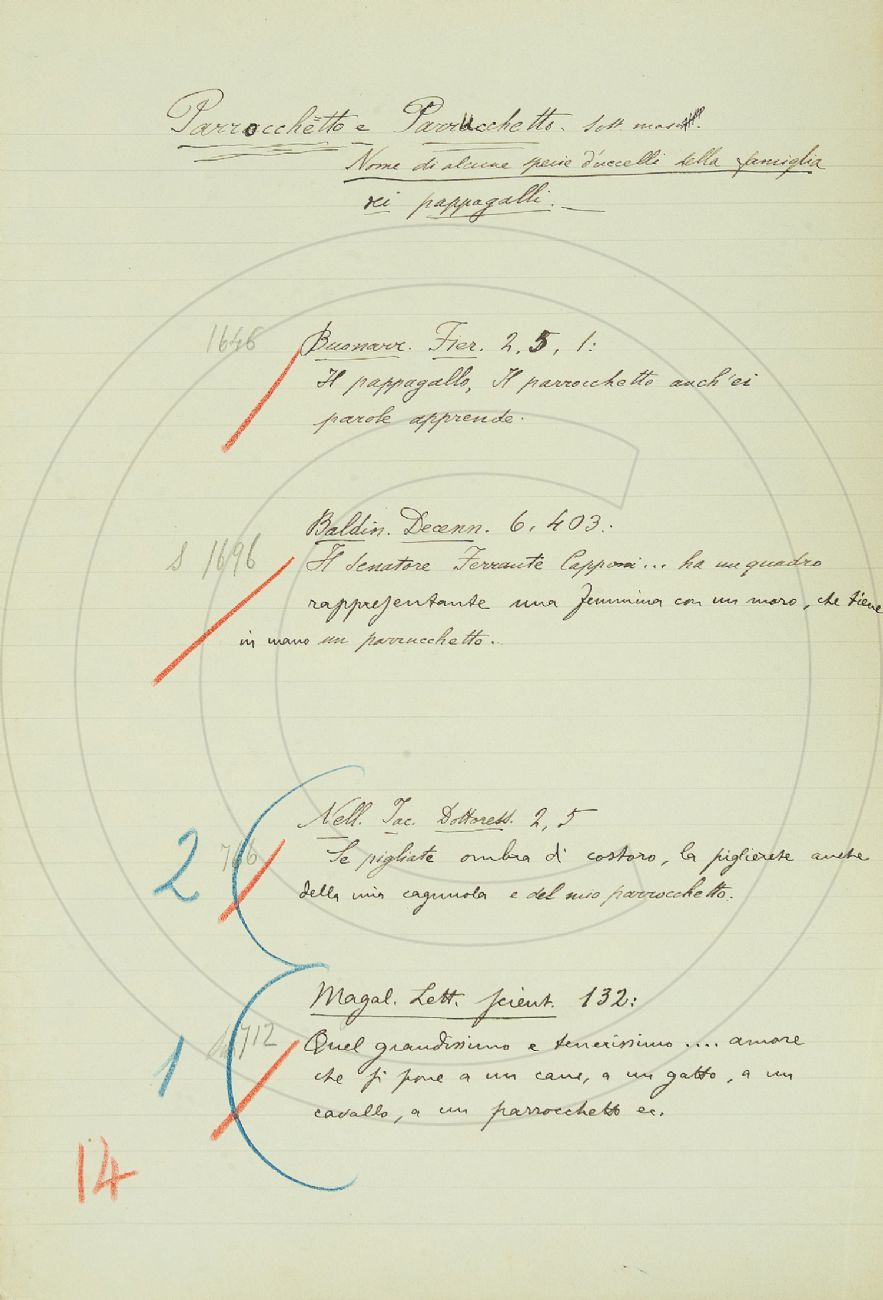 Parrocchetto e Parrucchetto. Sost. masch.
Nome di alcune specie d'uccelli della famiglia
dei pappagalli.
1646 Buonarr. Fier. 2, 5, 1:
Il pappagallo, Il parrocchetto anch'ei
parole apprende.
S 1696 Baldin. Decenn. 6, 403:
Il Senatore Ferrante Capponi... ha un quadro
rappresentante una femmina con un moro, che tiene
in mano un parrucchetto.
Nell. Iac. Dottoress. 2, 5
2 Se pigliate ombra di costoro, la piglierete anche
della mia cagnuola e del mio parrocchetto.
Magal. Lett. scient. 132:
1 712 Quel grandissimo e tenerissimo .... amore
che si pone a un cane, a un gatto, a un
cavallo, a un parrocchetto ec.
14